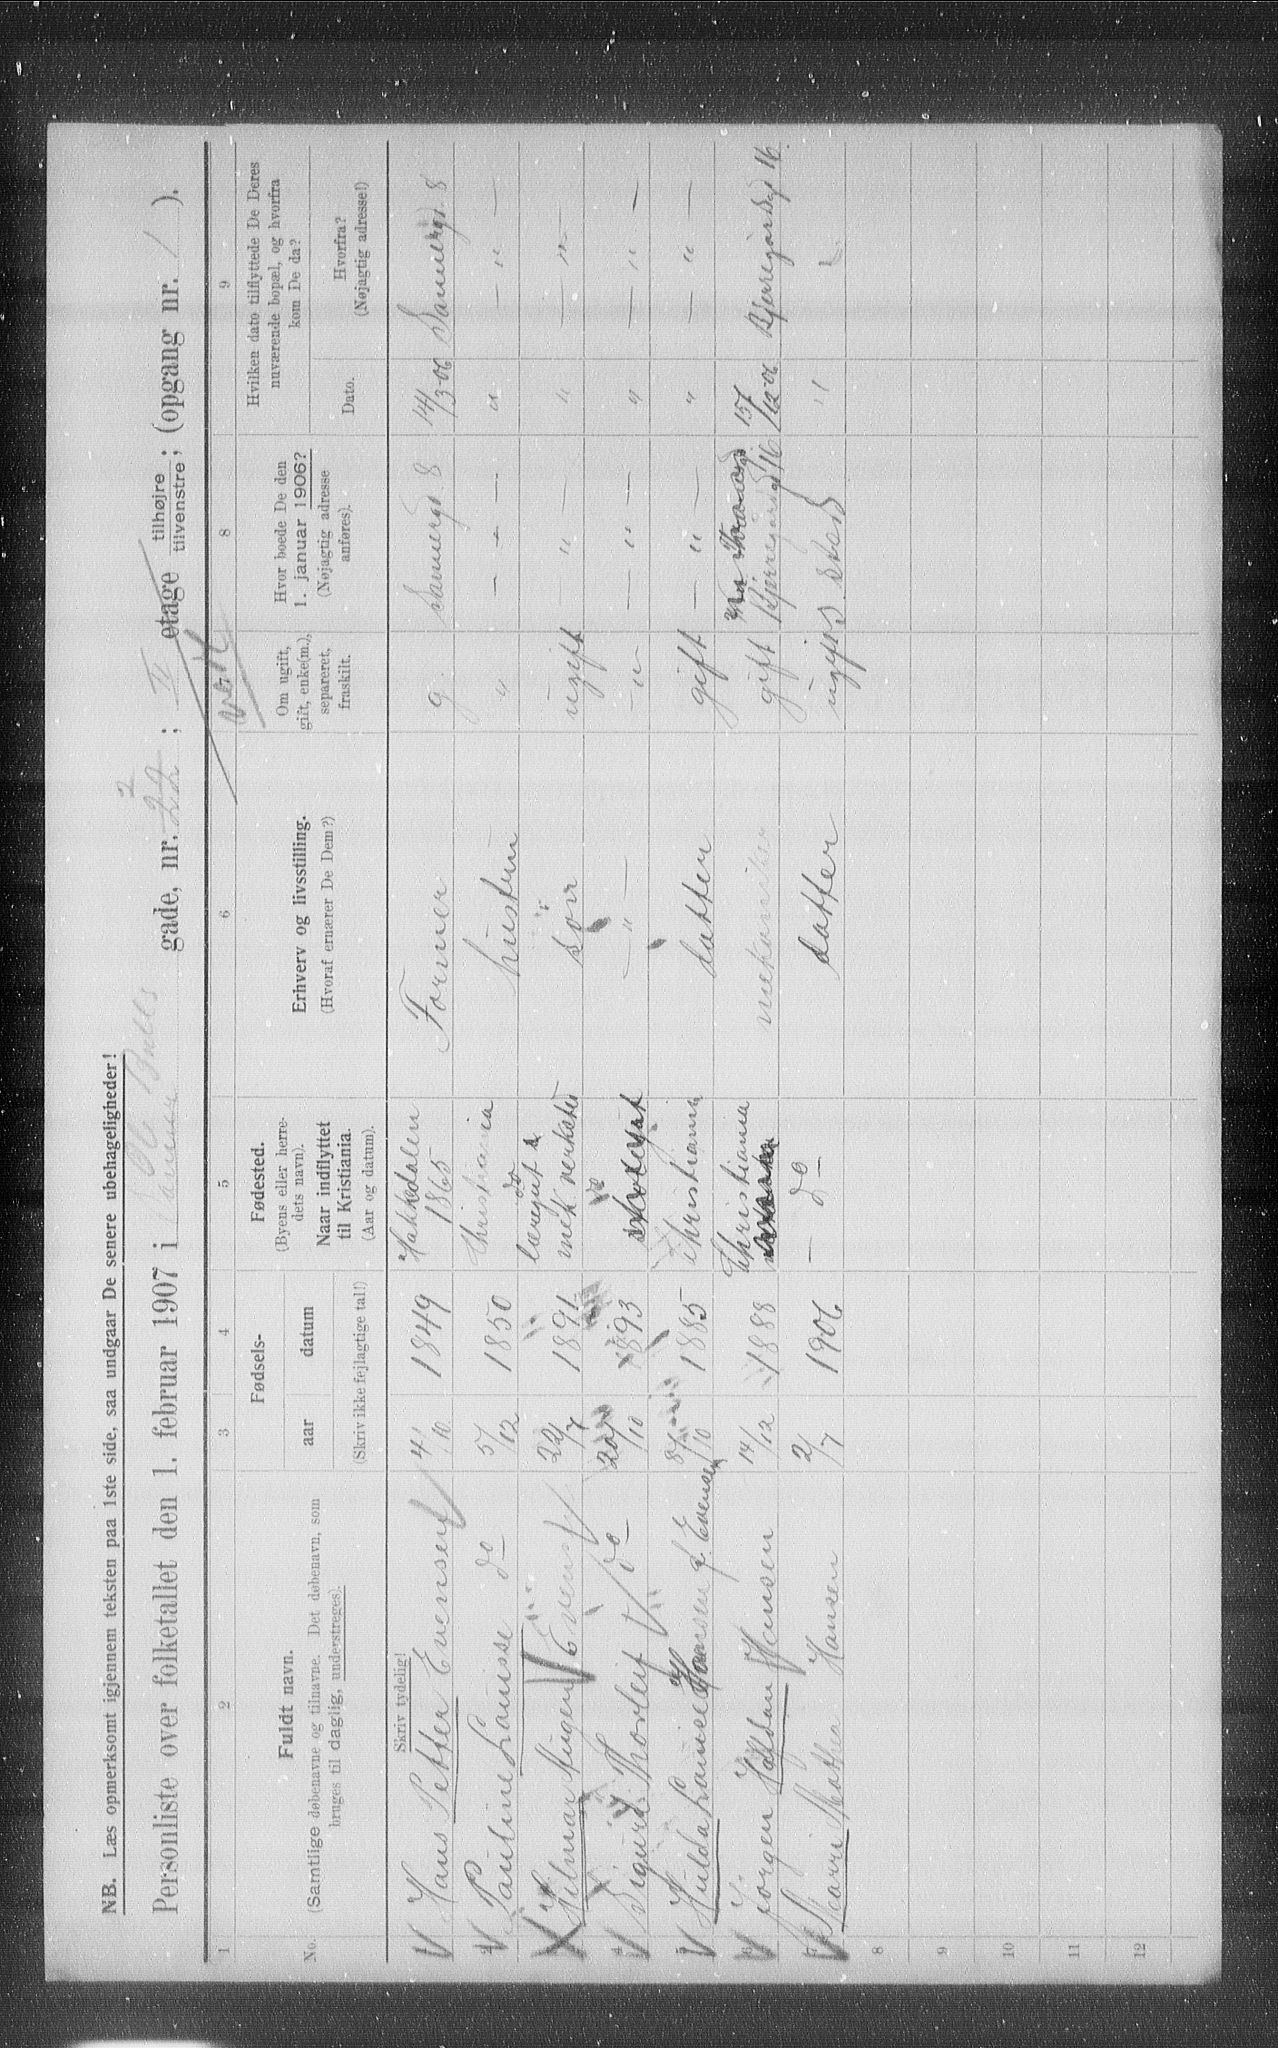 NB. Læs opmerksomt igjennem teksten paa 1ste side, saa undgaar De senere ubehageligheder!
Ole Bulls
Personliste over folketallet den 1. februar 1907 i gade, nr. 22 2; II etage tilhøjre tilvenstre; (opgang nr. 1).
1 2 3 4 5 6 8 9
No.
Fuldt navn.
(Samtlige døbenavne og tilnavne. Det døbenavn, som
bruges til daglig, understreges).
Fødsels-
aar datum
(Skriv ikke fejlagtige tal!)
Fødested.
(Byens eller herre-
dets navn).
Naar indflyttet
til Kristiania.
(Aar og datum).
Erhverv og livsstilling.
(Hvoraf ernærer De Dem?)
Om ugift,
gift, enke(m.),
separeret,
fraskilt.
Hvor boede De den
1. januar 1906?
(Nøjagtig adresse
anføres).
Hvilken dato tilflyttede De Deres
nuværende bopæl, og hvorfra
kom De da?
Dato.
Hvorfra?
(Nøjagtig adresse!)
Skriv tydelig!
Hans Petter Evensen 4/10 1849 Hakkedalen 1865 Former g. Sannergd. 8 14/3 06 Sannergd. 8
2 Pauline Lauisse do 5/12 1850 Christiania hustru " — — — " — " —
Hilmar Evensen 22/7 1891 do læregut mek verksted søn ugift — " — " — " —
4 Sigurd Thorleif do 20/10 1893 do — " — — " — — " — " — " —
5 Hulda Lauise Hansen f. Evensen 8/10 1885 Christiania datter gift — " — " — " —
6 Jørgen Halfdan Hansen 14/12 1888 Christiania mekaniker gift Bjerregårdsgd 16 15/12 06 Bjerregårdsgd 16
7 Mathea Hansen 2/7 1906 — do — datter ugift "
8
9
10
11
12